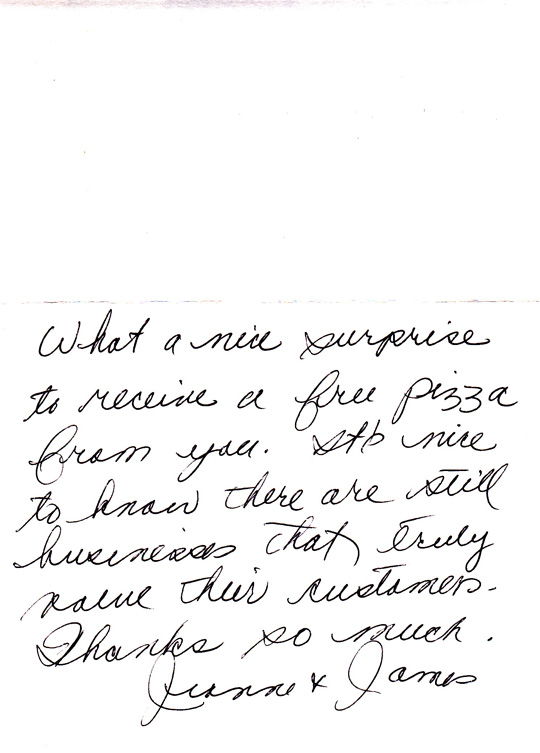 What a nice surprise
to receive a free pizza
from you. It's nice
to know there are still
businesses that truly
value their customers.
Thanks so much.
Jeanne & James